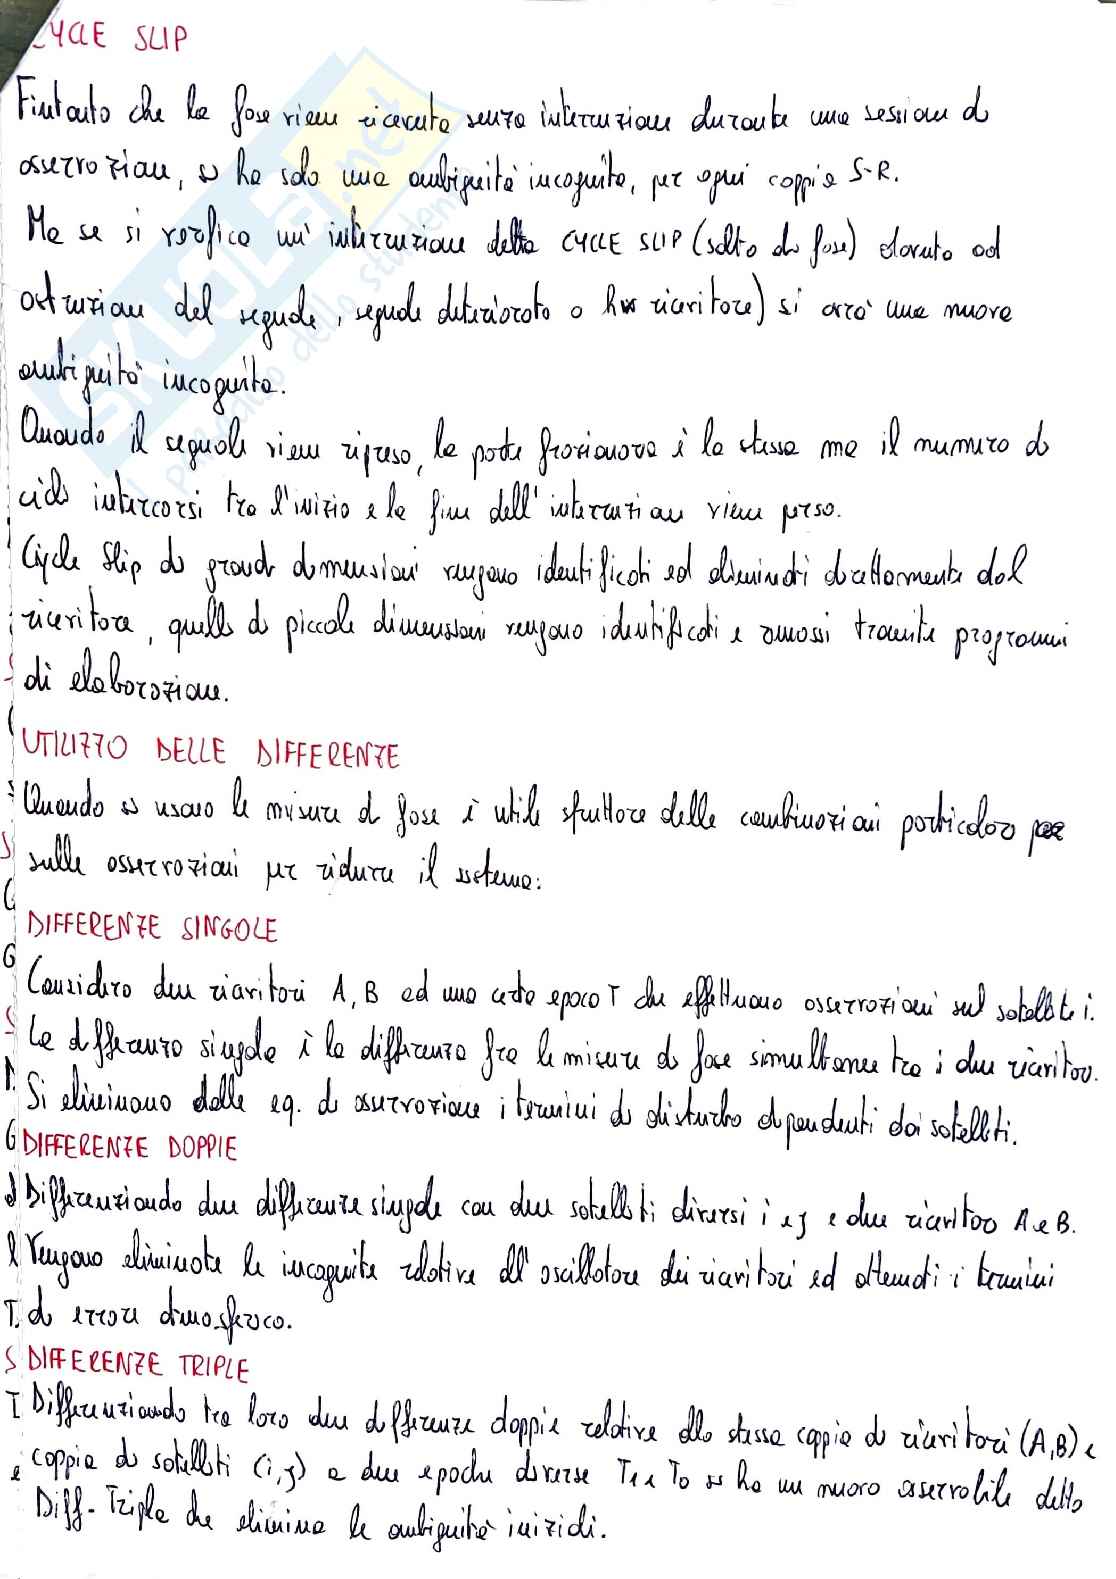 CYCLE SLIP
Fintanto che la fase viene ricevuta senza interruzione durante una sessione di
osservazione, si ha solo una ambiguità incognita, per ogni coppia S-R.
Ma se si verifica un' interruzione detta CYCLE SLIP (salto di fase) dovuto ad
ostruzione del segnale, segnale deteriorato o ricevitore) si avrà una nuova
ambiguità incognita.
Quando il segnale viene ripreso, la parte frazionaria è la stessa ma il numero di
cicli intercorsi tra l'inizio e la fine dell'interruzione viene perso.
Cycle Slip di grandi dimensioni vengono identificati ed eliminati direttamente dal
ricevitore, quelli di piccole dimensioni vengono identificati e rimossi tramite programmi
di elaborazione.
UTILIZZO DELLE DIFFERENZE
Quando si usano le misure di fase è utile sfruttare delle combinazioni particolari
sulle osservazioni per ridurre il sistema:
DIFFERENZE SINGOLE
Considero due ricevitori A, B ed una certa epoca T che effettuano osservazioni sul satellite i.
La differenza singola è la differenza fra le misure di fase simultanee tra i due ricevitori.
Si eliminano dalle eq. di osservazione i termini di disturbo dipendenti dai satelliti.
DIFFERENZE DOPPIE
Differenziando due differenze singole con due satelliti diversi i e j e due ricevitori A e B.
Vengono eliminate le incognite relative all'oscillatore dei ricevitori ed attenuati i termini
di errore atmosferico.
DIFFERENZE TRIPLE
Differenziando tra loro due differenze doppie relative alla stessa coppia di ricevitori (A,B) e
coppia di satelliti (i,j) a due epoche diverse T1 e T0 si ha un nuovo osservabile detto
Diff-Triple che elimina le ambiguità iniziali.
SKUOLA.net
il paradiso dello studente